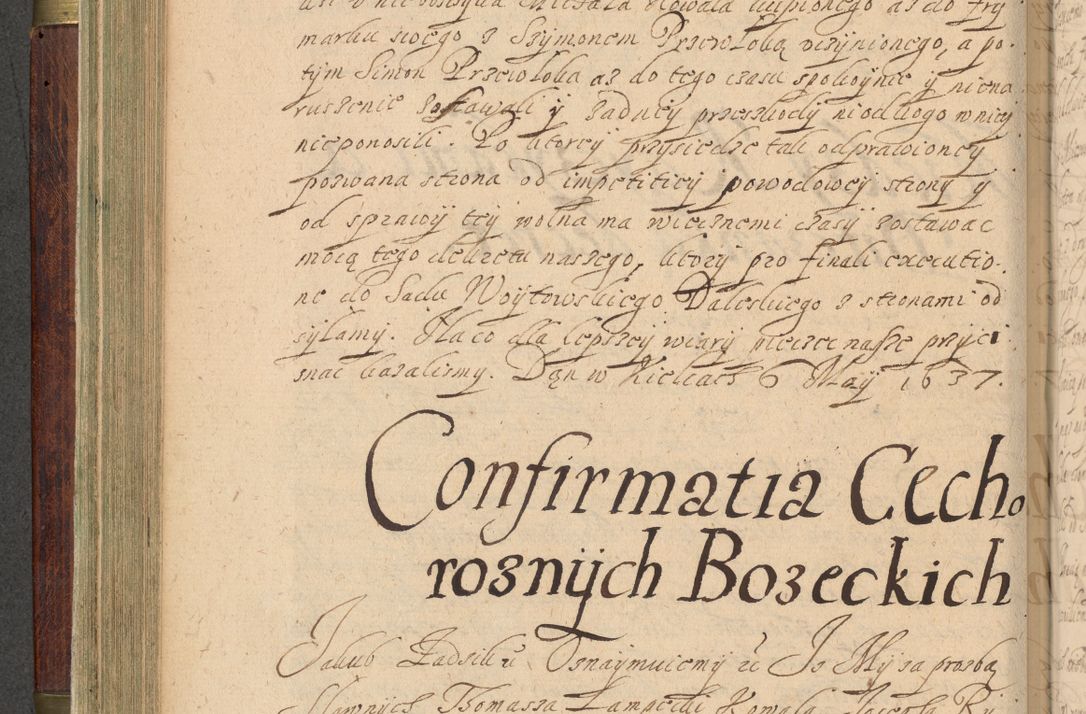 marku swego z Szymonem Przewłoką uczynionego, a po-
tym Simon Przewłoka asz do tego czasu spokoynie y niena
ruszenie zostawali y zadney przeszkody niodkogo wniey
nieponosili. Po ktorey przysiedze tak odprawioney
pozwana strona od impetitiey powodowey strony y
od sprawy tey wolna ma wiecznemi czasy zostawac
mocą tego dekretu naszego, ktory pro finali executio-
ne do Sadu Woytowskiego Daleskiego z stronami od
syłamy. Na co dla lepszey wiary pieczec nasze przyci
snac kazalismy. Dan w Kielcach 6 Maÿ 1637.
Confirmatia Cech
roznÿch Bozeckich
Jakub Zadzik Oznaymuiemy Jz My za prozbą
Sławnych Thomasza Kowala